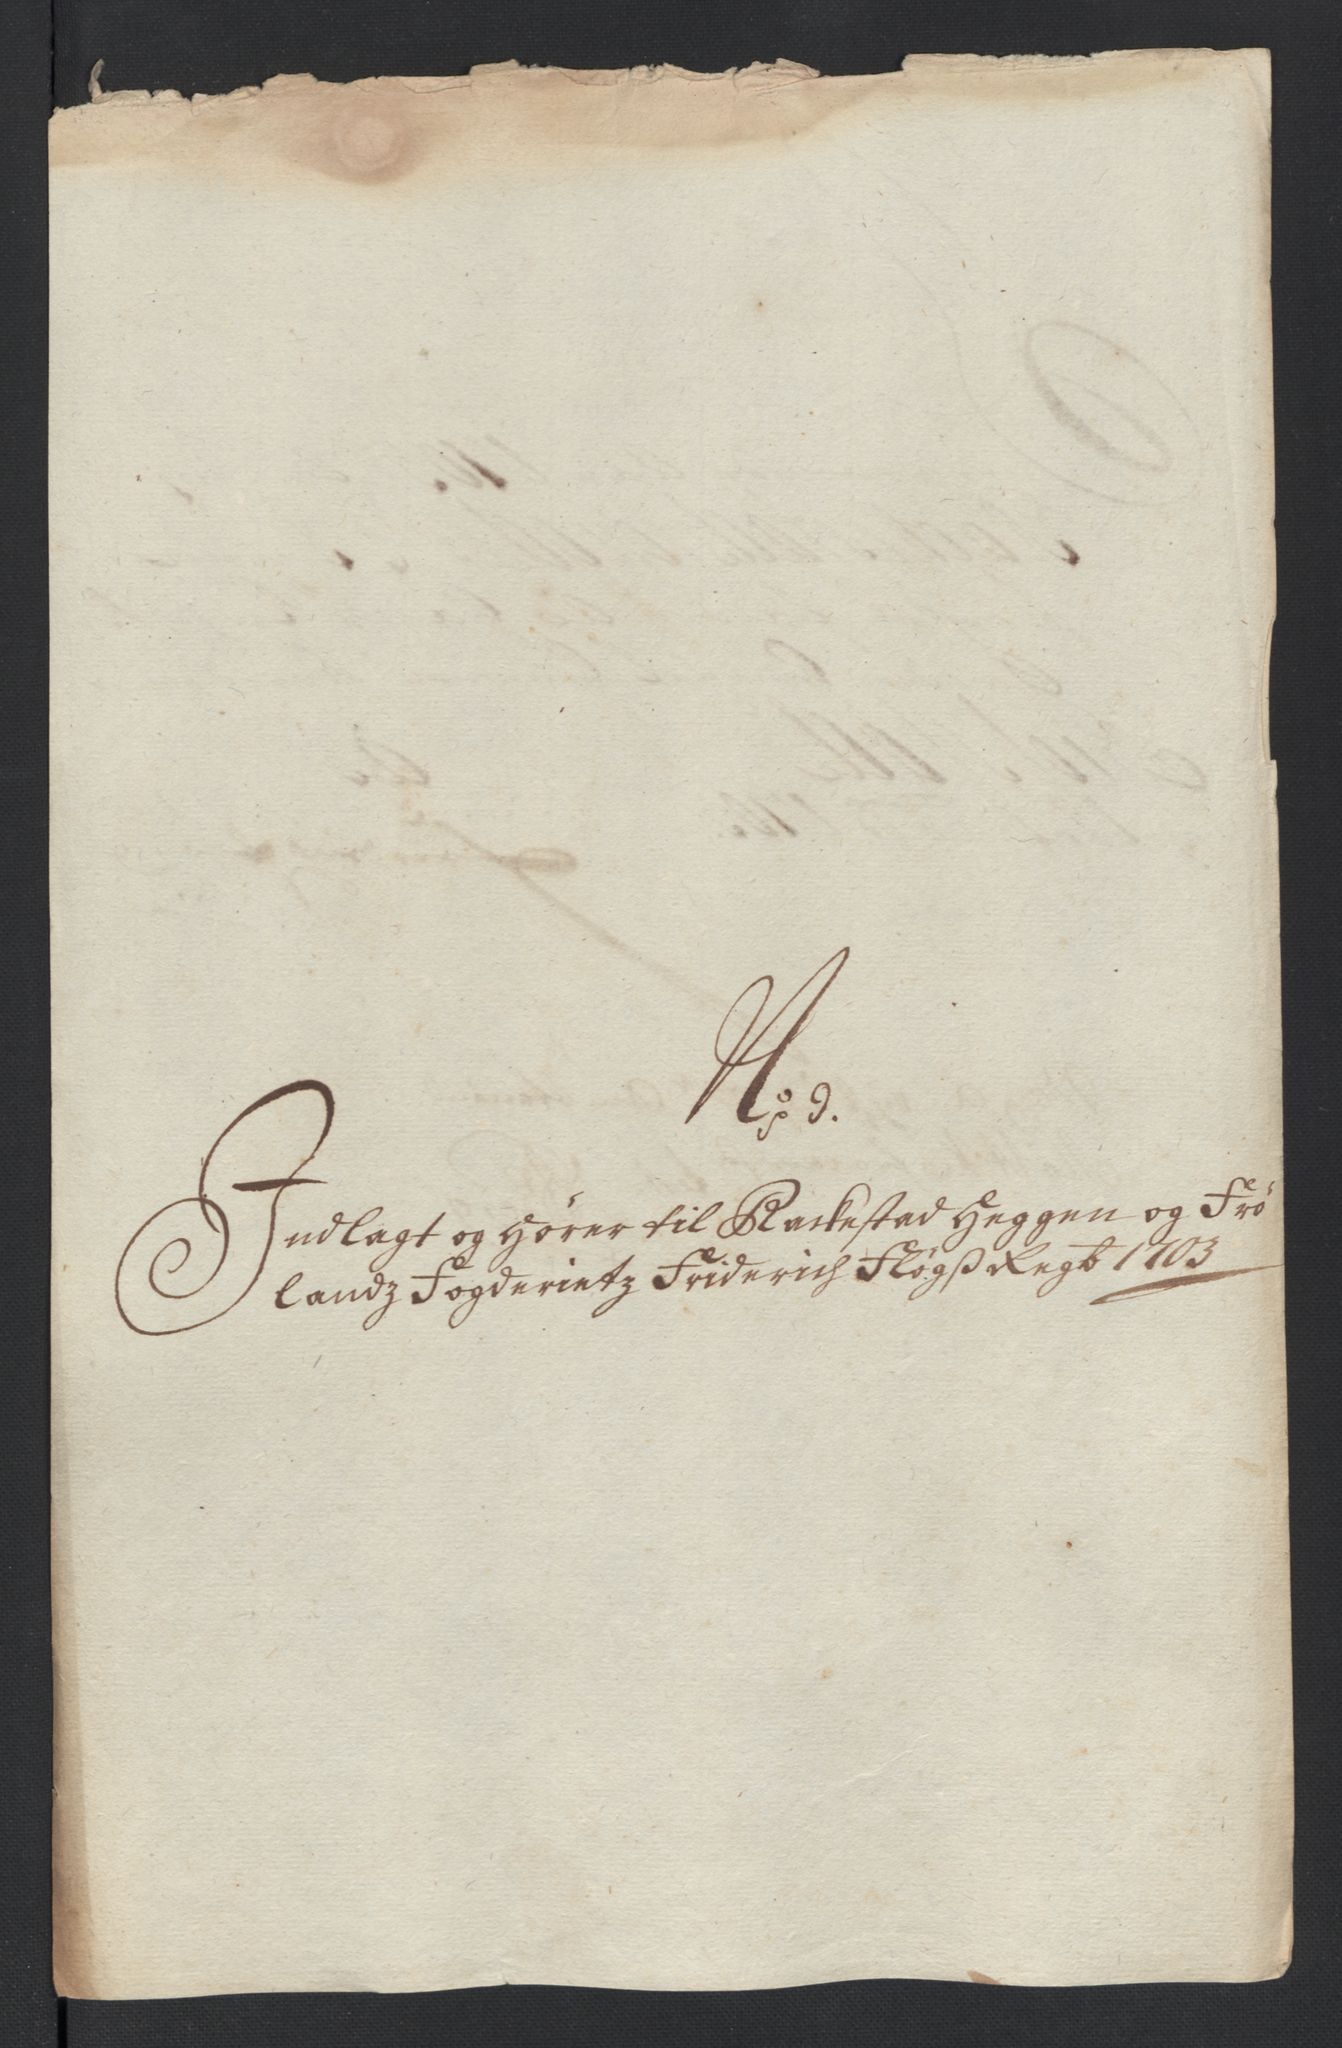 No 9.
Indlagt og hører til Rackestad Heggen og Frö
landz Fogderietz Friderich Fløgß Regb 1703